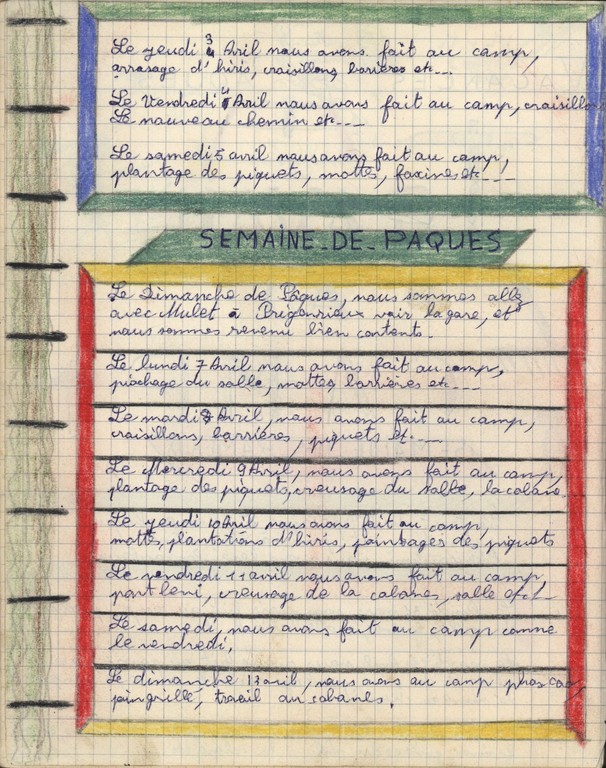 Le jeudi 3 Avril nous avons fait au camp,
arrosage d'hiris, croisillons, barrières etc...
Le Vendredi 4 Avril nous avons fait au camp, croisillon
Le nouveau chemin etc---
Le samedi 5 avril nous avons fait au camp,
plantage des piquets, mottes, faxines etc---
SEMAINE-DE-PAQUES
Le Dimanche de Pâques, nous sommes allés
avec Mulet à Prigonrieux voir la gare, et
nous sommes revenu bien contents.
Le lundi 7 Avril nous avons fait au camp,
piochage du sable, mottes, barrières etc---
Le mardi 8 Avril, nous avons fait au camp,
croisillons, barrières, piquets etc---
Le Mercredi 9 Avril, nous avons fait au camp,
plantage des piquets, creusage du sable, la cabane
Le jeudi 10 Avril nous avons fait au camp,
mottes, plantations d'hiris, peintages des piquets
Le vendredi 11 avril nous avons fait au camp,
pont levi, creusage de la cabanes, sable etc--
Le samedi, nous avons fait au camp comme
le vendredi.
Le dimanche 13 avril, nous avons au camp
pain grillé, travail au cabanes.